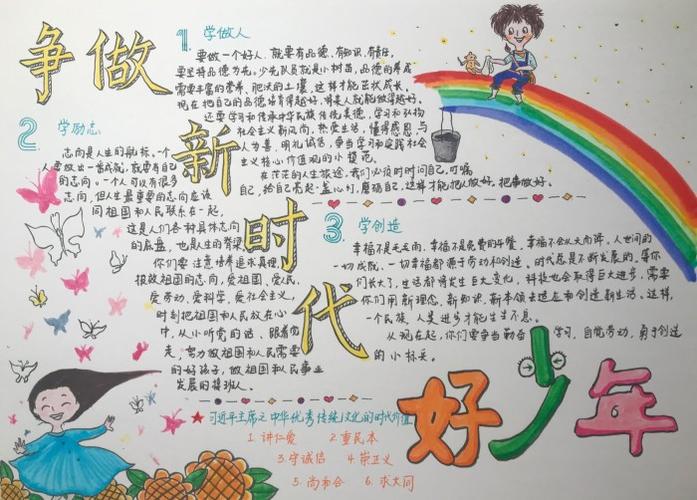 争做
新
时
代
好少年
1. 学做人
要做一个好人,就要有品德、有知识、有责任,
要坚持品德为先。少先队员就是小树苗,品德的养成
需要丰富的营养、肥沃的土壤,这样才能茁壮成长。
现在把自己的品德培育得越好,将来人就能做得越好。
还要学习和传承中华民族传统美德,学习和弘扬
社会主义新风尚,热爱生活,懂得感恩,与
人为善,明礼诚信,争当学习和实践社会
主义核心价值观的小模范。
在茫茫的人生旅途,我们必须时时问自己,叮嘱
自己,给自己亮起一盏心灯,磨砺自己,这样才能把人做好,把事做好。
2 学励志
志向是人生的航标。一个
人要做出一番成就,就要有自己
的志向。一个人可以有很多
志向,但人生最重要的志向应该
同祖国和人民联系在一起,
这是人们各种具体志向
的底盘,也是人生的脊梁。
你们要注意培养追求真理、
报效祖国的志向,爱祖国、爱人民、
爱劳动、爱科学、爱社会主义,
时刻把祖国和人民放在心
中,从小听党的话、跟着党
走,努力做祖国和人民需要
的好孩子,做祖国和人民事业
发展的接班人。
3. 学创造
幸福不是毛毛雨,幸福不是免费的午餐,幸福不会从天而降。人世间的
一切成就、一切幸福都源于劳动和创造。时代总是不断发展的,等你
们长大了,生活都将发生巨大变化,科技也会取得巨大进步,需要
你们用新理念、新知识、新本领去适应和创造新生活。这样,
一个民族、人类进步才能生生不息。
从现在起,你们要争当勤奋学习、自觉劳动、勇于创造
的小标兵。
★习近平主席之中华优秀传统文化的时代价值
1. 讲仁爱 2. 重民本
3. 守诚信 4. 崇正义
5. 尚和合 6. 求大同